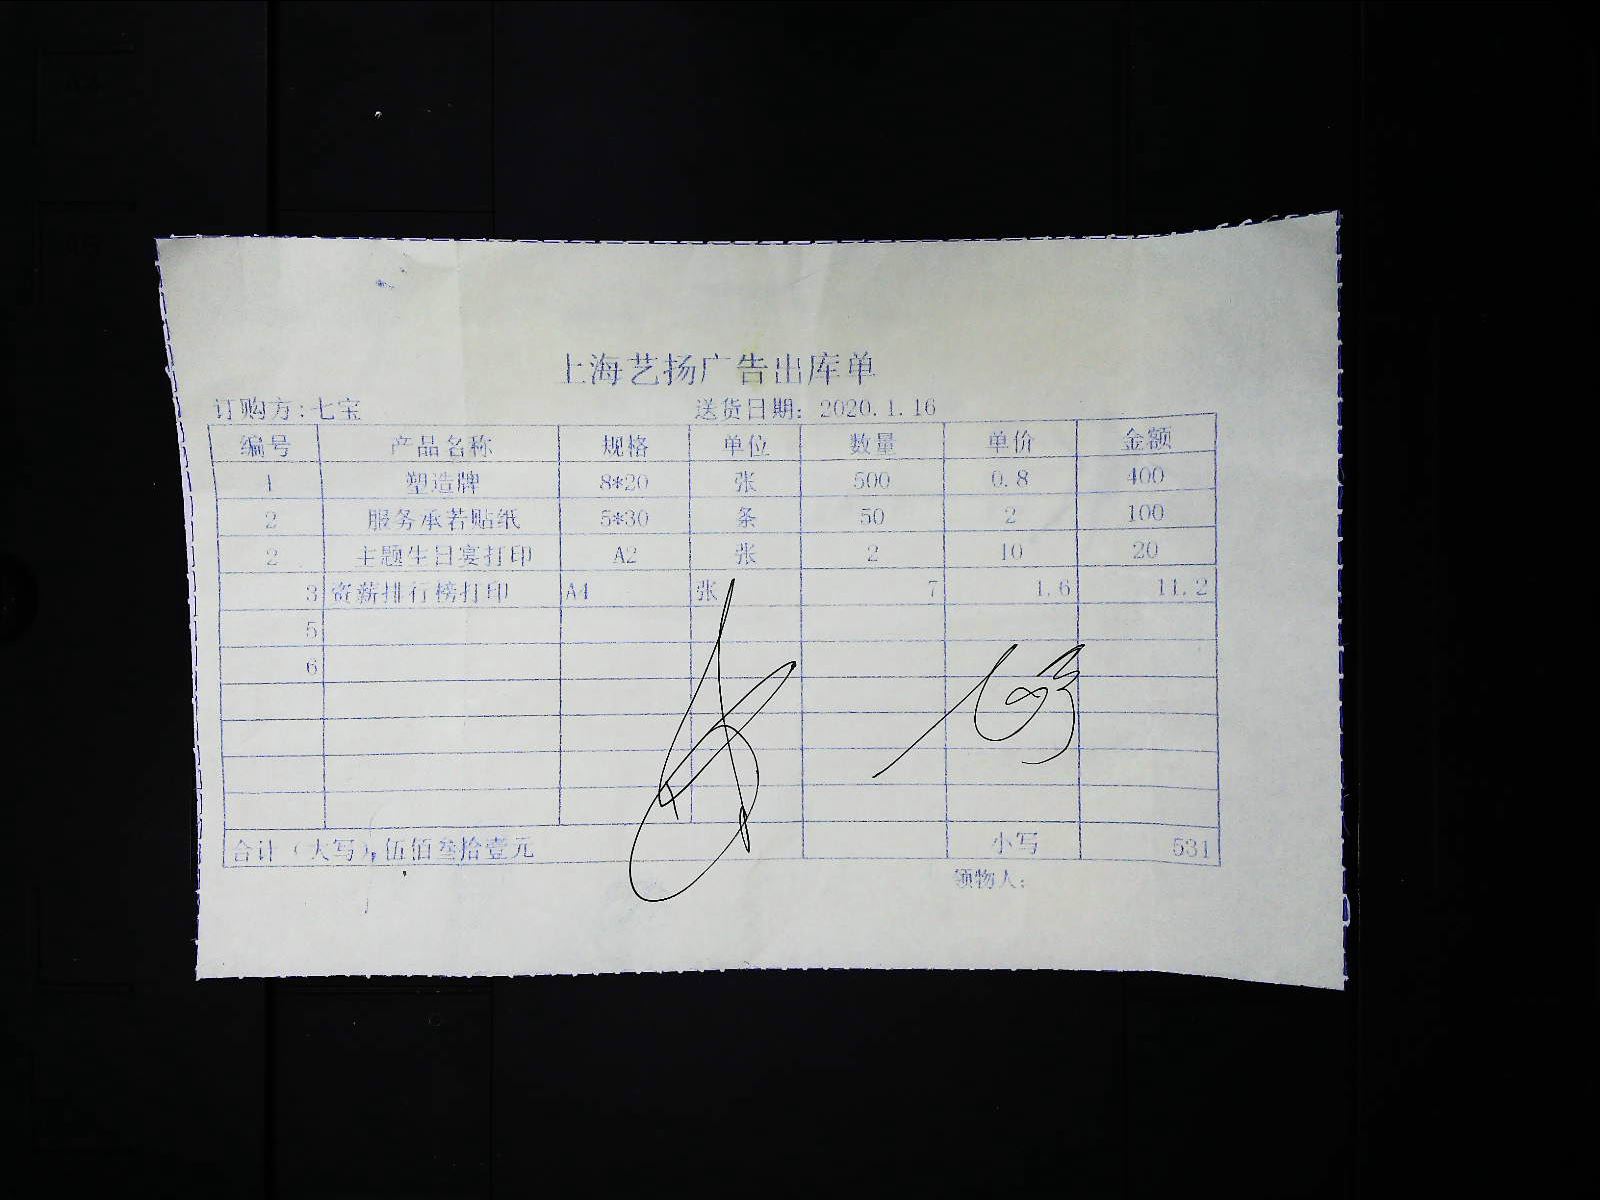 上海艺扬广告出库单
订购方:七宝 送货日期: 2020.1.16
编号 产品名称 规格 单位 数量 单价 金额
1 塑造牌 8*20 张 500 0.8 400
2 服务承若贴纸 5*30 条 50 2 100
2 主题生日宴打印 A2 张 2 10 20
3 资薪排行榜打印 A4 张 7 1.6 11.2
5
6
合计（大写）：伍佰叁拾壹元 小写 531
领物人: